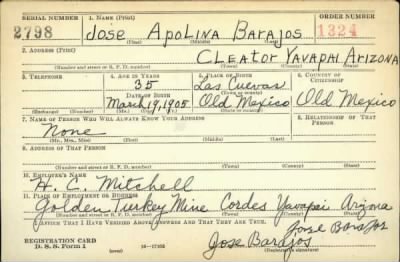 SERIAL NUMBER 1. NAME (Print) ORDER NUMBER
2798 Jose Apolina Barajos 1324
(First) (Middle) (Last)
2. ADDRESS (Print)
Cleator Yavapai Arizona
(Number and street or R. F. D. number) (Town) (County) (State)
3. TELEPHONE 4. AGE IN YEARS 5. PLACE OF BIRTH 6. COUNTRY OF CITIZENSHIP
35 Las Cuevas
DATE OF BIRTH (Town or county)
March 19, 1905 Old Mexico Old Mexico
(Exchange) (Number) (Mo.) (Day) (Yr.) (State or country)
7. NAME OF PERSON WHO WILL ALWAYS KNOW YOUR ADDRESS 8. RELATIONSHIP OF THAT PERSON
None
(Mr., Mrs., Miss) (First) (Middle) (Last)
9. ADDRESS OF THAT PERSON
(Number and street or R. F. D. number) (Town) (County) (State)
10. EMPLOYER'S NAME
H. C. Mitchell
11. PLACE OF EMPLOYMENT OR BUSINESS
Golden Turkey Mine Cordes Yavapai Arizona
(Number and street or R. F. D. number) (Town) (County) (State)
I AFFIRM THAT I HAVE VERIFIED ABOVE ANSWERS AND THAT THEY ARE TRUE.
Jose Barajos
REGISTRATION CARD
D. S. S. Form 1 (over) 16—17105 Jose Barajos